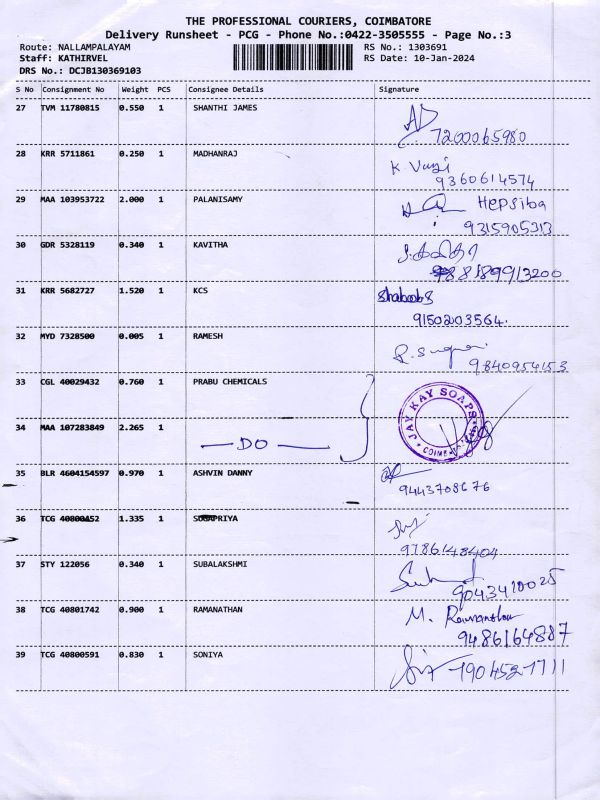 THE PROFESSIONAL COURIERS, COIMBATORE
Delivery Runsheet - PCG - Phone No.:0422-3505555 - Page No.:3
Route: NALLAMPALAYAM RS No.: 1303691
Staff: KATHIRVEL RS Date: 10-Jan-2024
DRS No.: DCJB130369103
S No Consignment No Weight PCS Consignee Details Signature
27 TVM 11780815 0.550 1 SHANTHI JAMES
7200065980
28 KRR 5711861 0.250 1 MADHANRAJ K
9360614574
29 MAA 103953722 2.000 1 PALANISAMY Hepsiba
9315905313
30 GDR 5328119 0.340 1 KAVITHA
8189913200
31 KRR 5682727 1.520 1 KCS
9150203564.
32 MYD 7328500 0.005 1 RAMESH
9840954153
33 CGL 40029432 0.760 1 PRABU CHEMICALS JAY KAY SOAPS
34 MAA 107283849 2.265 1 — DO —
35 BLR 4604154597 0.970 1 ASHVIN DANNY
9443708676
36 TCG 40800452 1.335 1 SUGAPRIYA
9786148404
37 STY 122056 0.340 1 SUBALAKSHMI
9043410025
38 TCG 40801742 0.900 1 RAMANATHAN M. Ramanathan
9486164887
39 TCG 40800591 0.830 1 SONIYA 7904521711